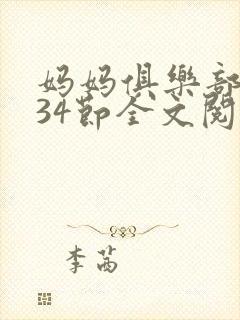 妈妈俱樂部
34節全文閱
李茜